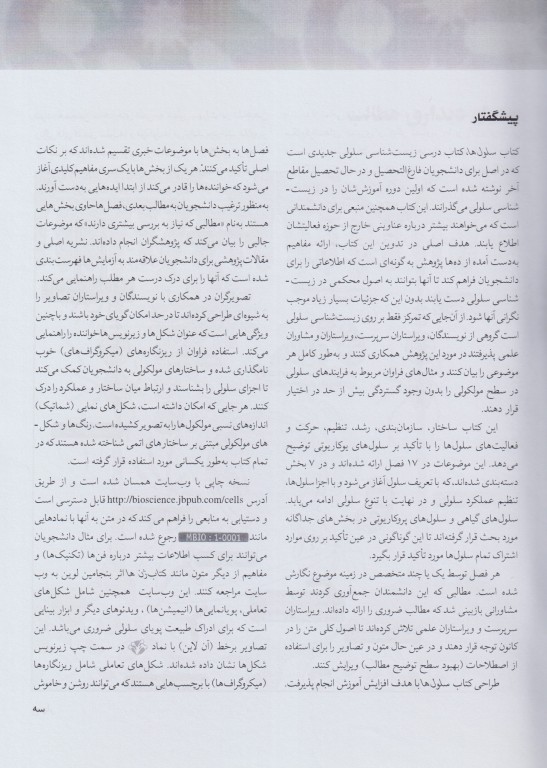 پیشگفتار
کتاب سلول‌ها، کتاب درسی زیست‌شناسی سلولی جدیدی است
که در اصل برای دانشجویان فارغ‌التحصیل و در حال تحصیل مقاطع
آخر نوشته شده است که اولین دوره آموزش‌شان را در زیست‌ـ
شناسی سلولی می‌گذرانند. این کتاب همچنین منبعی برای دانشمندانی
است که می‌خواهند بیشتر درباره عناوینی خارج از حوزه فعالیتشان
اطلاع یابند. هدف اصلی در تدوین این کتاب، ارائه مفاهیم
به‌دست آمده از ده‌ها پژوهش به گونه‌ای است که اطلاعاتی را برای
دانشجویان فراهم کند تا آنها بتوانند به اصول محکمی در زیست‌ـ
شناسی سلولی دست یابند بدون این که جزئیات بسیار زیاد موجب
نگرانی آنها شود. از آن‌جایی که تمرکز فقط بر روی زیست‌شناسی سلولی
است گروهی از نویسندگان، ویراستاران سرپرست، ویراستاران و مشاوران
علمی پذیرفتند در مورد این پژوهش همکاری کنند و به‌طور کامل هر
موضوعی را بیان کنند و مثال‌های فراوان مربوط به فرایندهای سلولی
در سطح مولکولی را بدون وجود گستردگی بیش از حد در اختیار
قرار دهند.
این کتاب ساختار، سازمان‌بندی، رشد، تنظیم، حرکت و
فعالیت‌های سلول‌ها را با تأکید بر سلول‌های یوکاریوتی توضیح
می‌دهد. این موضوعات در ۱۷ فصل ارائه شده‌اند و در ۷ بخش
دسته‌بندی شده‌اند، که با تعریف سلول آغاز می‌شود و با اجزا سلول‌ها،
تنظیم عملکرد سلولی و در نهایت با تنوع سلولی ادامه می‌یابد.
سلول‌های گیاهی و سلول‌های پروکاریوتی در بخش‌های جداگانه
مورد بحث قرار گرفته‌اند تا این گوناگونی در عین تأکید بر روی موارد
اشتراک تمام سلول‌ها مورد تأکید قرار بگیرد.
هر فصل توسط یک یا چند متخصص در زمینه موضوع نگارش
شده است. مطالبی که این دانشمندان جمع‌آوری کردند توسط
مشاورانی بازبینی شد که مطالب ضروری را ارائه داده‌اند. ویراستاران
سرپرست و ویراستاران علمی تلاش کرده‌اند تا اصول کلی متن را در
کانون توجه قرار دهند و در عین حال متون و تصاویر را برای استفاده
از اصطلاحات (بهبود سطح توضیح مطالب) ویرایش کنند.
طراحی کتاب سلول‌ها با هدف افزایش آموزش انجام پذیرفت.
فصل‌ها به بخش‌ها با موضوعات خبری تقسیم شده‌اند که بر نکات
اصلی تأکید می‌کنند. هر یک از بخش‌ها با یک سری مفاهیم کلیدی آغاز
می‌شود که خواننده‌ها را قادر می‌کند از ابتدا ایده‌هایی به‌دست آورند.
به‌منظور ترغیب دانشجویان به مطالب بعدی، فصل‌ها حاوی بخش‌هایی
هستند به‌نام «مطالبی که نیاز به بررسی بیشتری دارند» که موضوعات
جالبی را بیان می‌کند که پژوهشگران انجام داده‌اند. نشریه اصلی و
مقالات پژوهشی برای دانشجویان علاقه‌مند به آزمایش‌ها فهرست‌بندی
شده است که آنها را برای درک درست هر مطلب راهنمایی می‌کند.
تصویرگران در همکاری با نویسندگان و ویراستاران تصاویر را
به شیوه‌ای طراحی کرده‌اند تا در حد امکان گویای خود باشند و با چنین
ویژگی‌هایی است که عنوان شکل‌ها و زیرنویس‌ها خواننده را راهنمایی
می‌کند. استفاده فراوان از ریزنگاره‌های (میکروگراف‌های) خوب
نامگذاری شده و ساختارهای مولکولی به دانشجویان کمک می‌کند
تا اجزای سلولی را بشناسند و ارتباط میان ساختار و عملکرد را درک
کنند. هر جایی که امکان داشته است، شکل‌های نمایی (شماتیک)
اندازه‌های نسبی مولکول‌ها را به تصویر کشیده است. رنگ‌ها و شکل‌ـ
های مولکولی مبتنی بر ساختارهای اتمی شناخته شده هستند که در
تمام کتاب به‌طور یکسانی مورد استفاده قرار گرفته است.
نسخه چاپی با وب‌سایت همسان شده است و از طریق
آدرس http://bioscience.jbpub.com/cells قابل دسترسی است
و دستیابی به منابعی را فراهم می‌کند که در متن به آنها با نمادهایی
مانند MBIO : 1-0001 رجوع شده است. برای مثال دانشجویان
می‌توانند برای کسب اطلاعات بیشتر درباره فن‌ها (تکنیک‌ها) و
مفاهیم از دیگر متون مانند کتاب ژن ها اثر بنجامین لوین به وب
سایت مراجعه کنند. این وب‌سایت همچنین شامل شکل‌های
تعاملی، پویانمایی‌ها (انیمیشن‌ها)، ویدئوهای دیگر و ابزار بینایی
است که برای ادراک طبیعت پویای سلولی ضروری می‌باشد. این
تصاویر برخط (آن لاین) با نماد در سمت چپ زیرنویس
شکل‌ها نشان داده شده‌اند. شکل‌های تعاملی شامل ریزنگاره‌ها
(میکروگراف‌ها) با برچسب‌هایی هستند که می‌توانند روشن و خاموش
سه